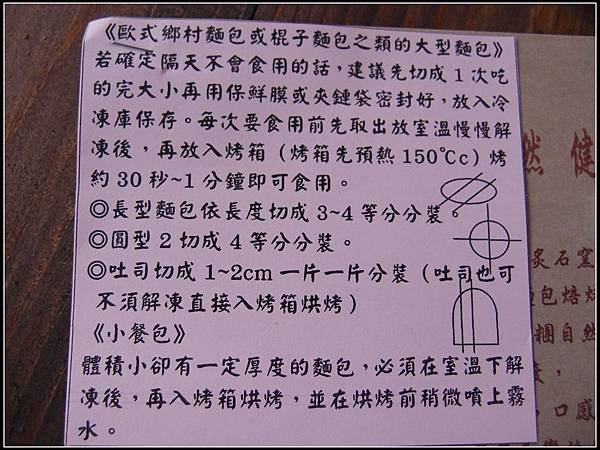 《歐式鄉村麵包或棍子麵包之類的大型麵包》
若確定隔天不會食用的話,建議先切成 1 次吃
的完大小再用保鮮膜或夾鏈袋密封好,放入冷
凍庫保存。每次要食用前先取出放室溫慢慢解
凍後,再放入烤箱(烤箱先預熱 150℃c)烤
約 30 秒~1 分鐘即可食用。
◎長型麵包依長度切成 3~4 等分分裝。
◎圓型 2 切成 4 等分分裝。
◎吐司切成 1~2cm 一片一片分裝(吐司也可
不須解凍直接入烤箱烘烤)
《小餐包》
體積小卻有一定厚度的麵包,必須在室溫下解
凍後,再入烤箱烘烤,並在烘烤前稍微噴上霧
水。
然 健
炙石窯
包焙
自然
,口感